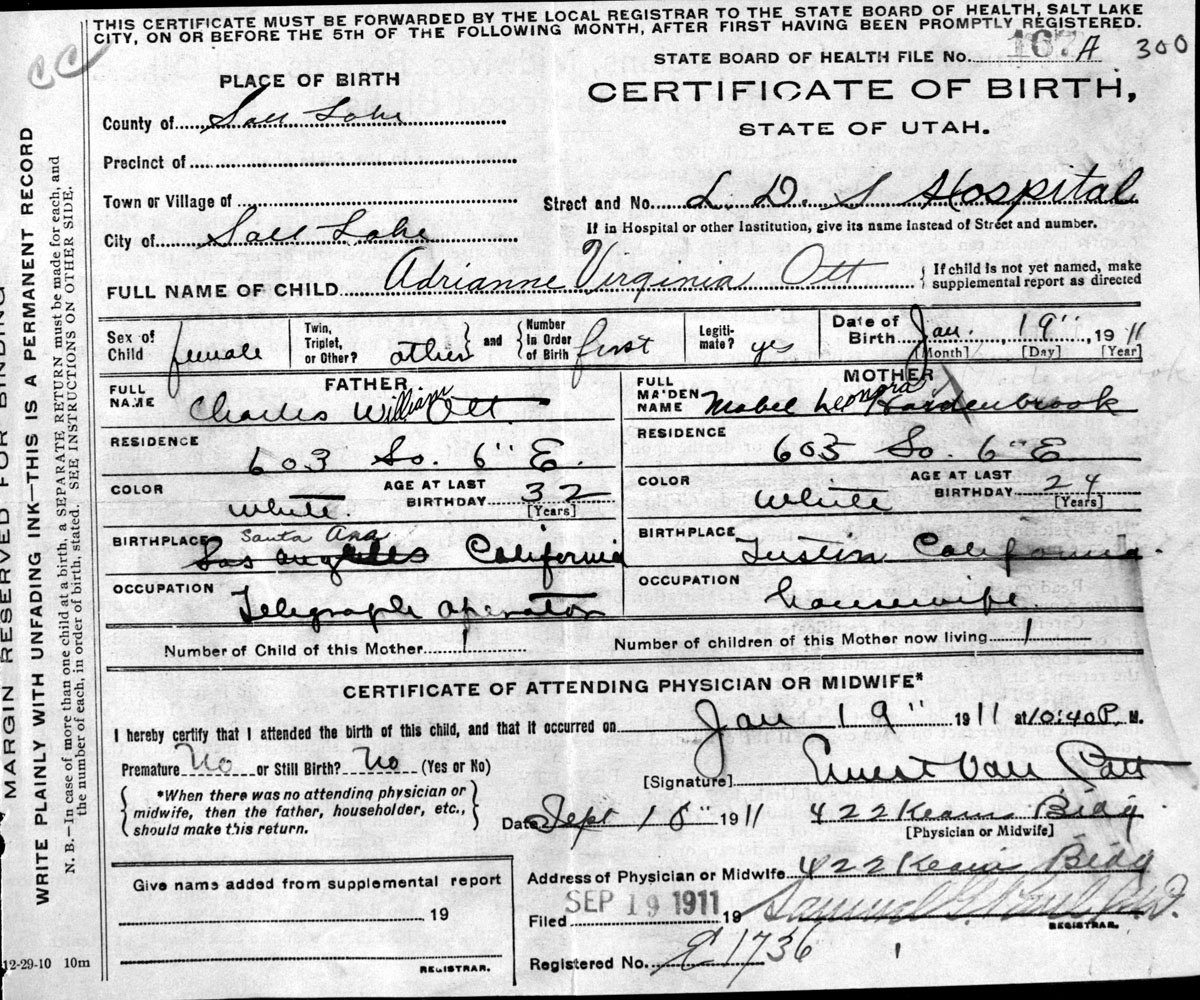 THIS CERTIFICATE MUST BE FORWARDED BY THE LOCAL REGISTRAR TO THE STATE BOARD OF HEALTH, SALT LAKE
CITY, ON OR BEFORE THE 5TH OF THE FOLLOWING MONTH, AFTER FIRST HAVING BEEN PROMPTLY REGISTERED.
CC
STATE BOARD OF HEALTH FILE No. 167 A 300
PLACE OF BIRTH
CERTIFICATE OF BIRTH,
STATE OF UTAH.
County of Salt Lake
Precinct of
Town or Village of
Street and No. L. D. S Hospital
If in Hospital or other Institution, give its name instead of Street and number.
City of Salt Lake
FULL NAME OF CHILD Adrianne Virginia Ott
{ If child is not yet named, make
supplemental report as directed
Sex of Child female
Twin, Triplet, or Other? other } and { Number In Order of Birth first
Legiti-mate? yes
Date of Birth Jan. 19" 1911
[Month] [Day] [Year]
FATHER
FULL NAME Charles William Ott
RESIDENCE 603 So. 6" E.
COLOR White AGE AT LAST BIRTHDAY 32 [Years]
BIRTHPLACE Santa Ana
Los Angeles California
OCCUPATION Telegraph Operator
MOTHER
FULL MAIDEN NAME Mabel Leonora Hardenbrook
RESIDENCE 603 So. 6" E
COLOR White AGE AT LAST BIRTHDAY 24 [Years]
BIRTHPLACE Tustin California.
OCCUPATION housewife.
Number of Child of this Mother 1 Number of children of this Mother now living 1
CERTIFICATE OF ATTENDING PHYSICIAN OR MIDWIFE*
I hereby certify that I attended the birth of this child, and that it occurred on Jan 19" 1911 at 10:40 P. M.
Premature No or Still Birth? No (Yes or No)
[Signature] Ernest Van Cott
{ *When there was no attending physician or
midwife, then the father, householder, etc.,
should make this return. }
Date Sept 18" 1911 422 Kearns Bldg
[Physician or Midwife]
Address of Physician or Midwife 422 Kearns Bldg
Give name added from supplemental report
19
REGISTRAR.
Filed SEP 19 1911 19
REGISTRAR.
Registered No. 1736
12-29-10 10m
MARGIN RESERVED FOR BINDING
WRITE PLAINLY WITH UNFADING INK—THIS IS A PERMANENT RECORD
N. B.—In case of more than one child at a birth, a SEPARATE RETURN must be made for each, and
the number of each, in order of birth, stated. SEE INSTRUCTIONS ON OTHER SIDE.